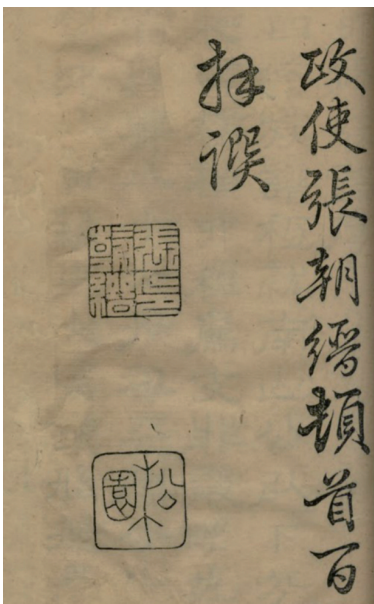 政使張朝縉頓首百
拜譔
張印朝縉
松園